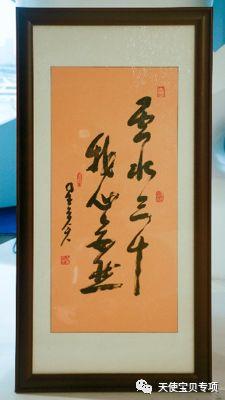 雲水三千
我心安然
天使宝贝专项